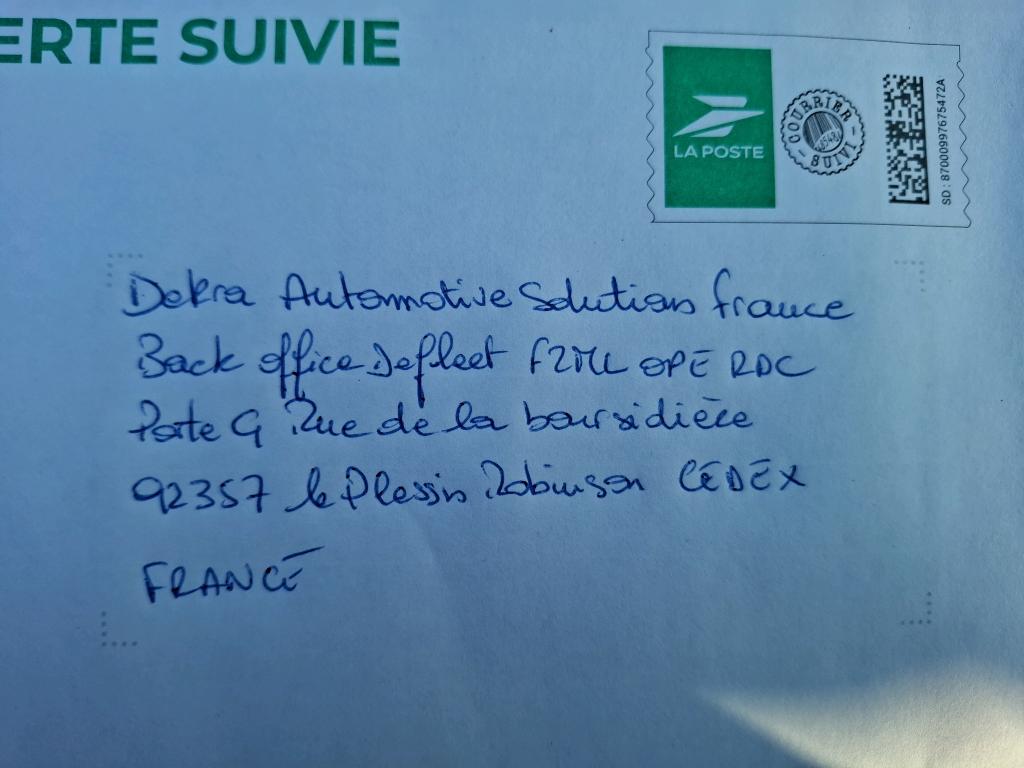 ERTE SUIVIE
LA POSTE
COURRIER SUIVI
SD : 87000997675472A
Dekra Automotive Solutions France
Back office Defleet F2ML OPE RDC
Porte G Rue de la boursidière
92357 le Plessis Robinson CEDEX
FRANCE